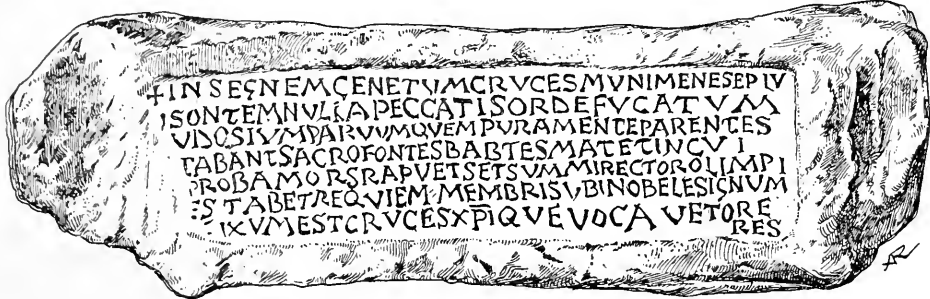 +INSEGNEMGENETVMCRVCESMVNIMENESEPIV
ISONTEMNULLAPECCATISORDEFVGATVM
VIDOSIVMPARVVMQVEMPVRAMENTEPARENTES
TABANTSACROFONTESBABTESMATETINGVI
PROBAMORSRAPVETSETSVMMIRECTOROLIMPI
STABETREQVIEM·MEMBRISVBINOBELESIGNVM
IXVMESTCRVCESXP̄IQVEVOCAVETORE
RES